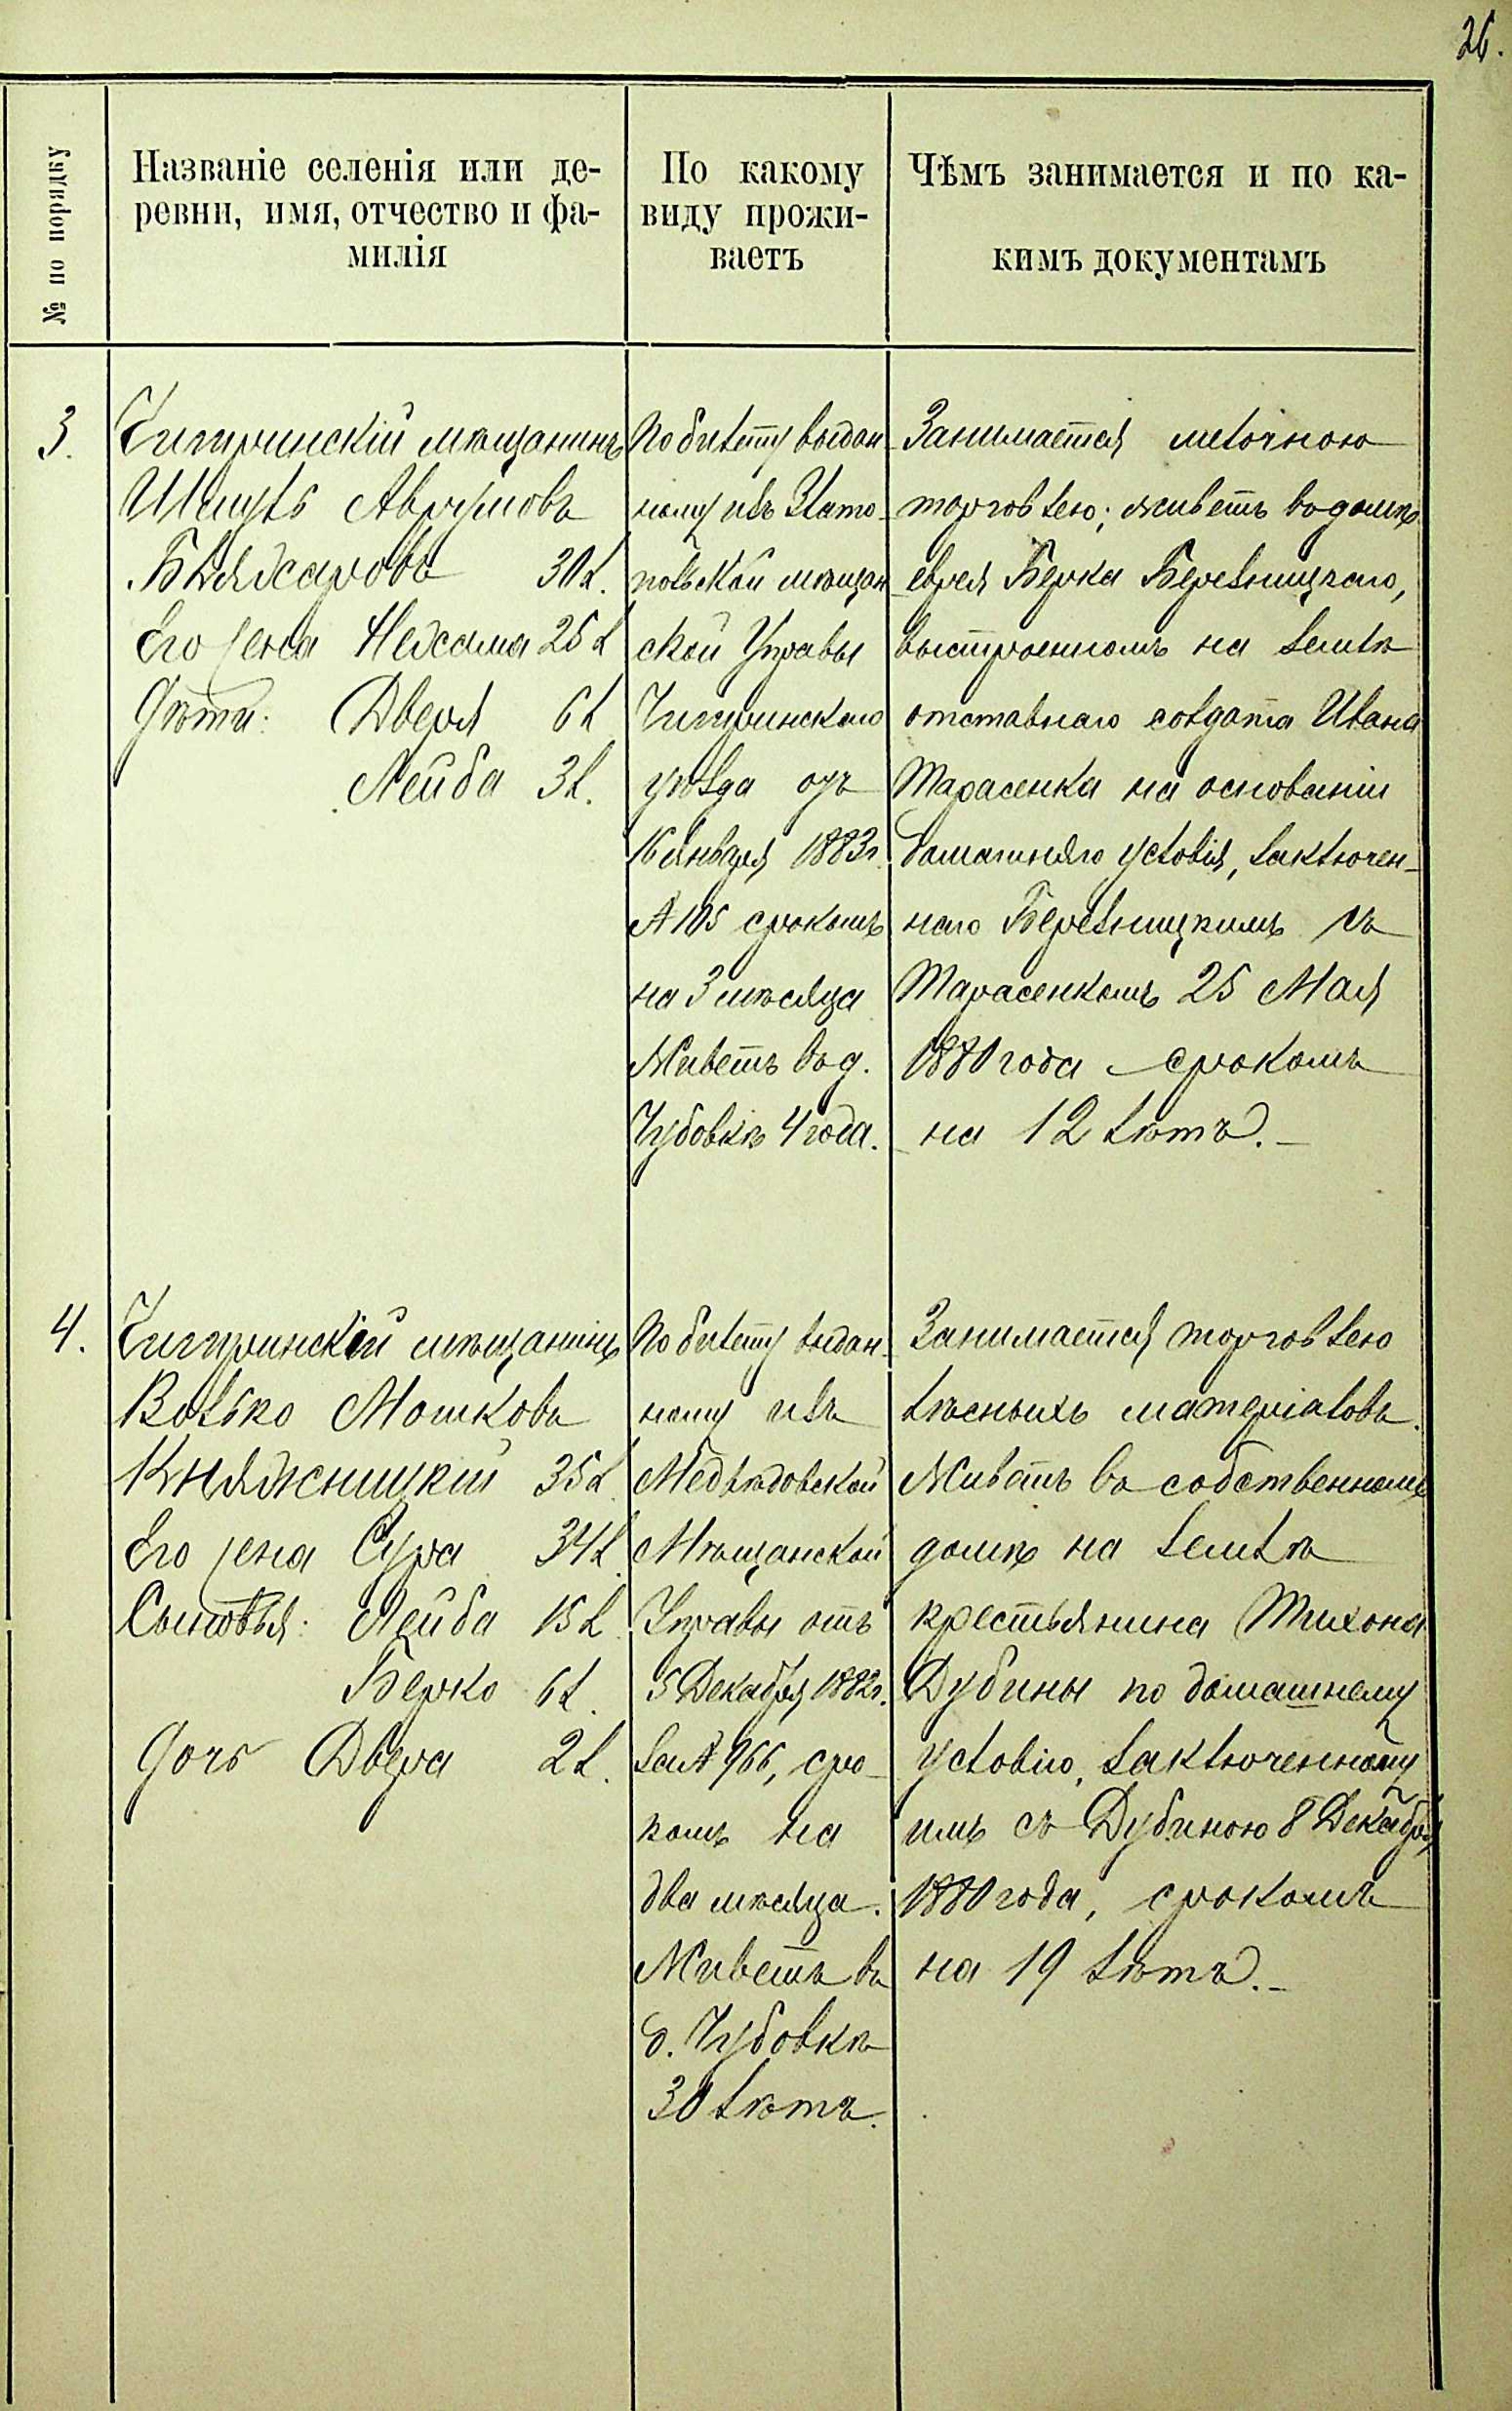 26.
№ по порядку
Названіе селенія или де-
ревни, имя, отчество и фа-
милія
По какому
виду прожи-
ваетъ
Чѣмъ занимается и по ка-
кимъ документамъ
3.
Чигиринскій мѣщанинъ
Шмуль Аврумовъ
Бѣляхаровъ 30 л.
Его жена Нехама 25 л
Дѣти: Двеся 6 л
Лейба 3 л.
По билету выдан-
ному изъ Злато-
польской мѣщан
ской Управы
Чигиринскаго
уѣзда отъ
16 января 1883 г.
№ 105 срокомъ
на 3 мѣсяца
Живетъ въ д.
Чубовкѣ 4 года.
Занимается мелочною
торговлею; живетъ въ домѣ
еврея Берка Березницкаго,
выстроенномъ на землѣ
отставнаго солдата Ивана
Тарасенка на основаніи
домашняго условія, заключен-
наго Березницкимъ съ
Тарасенкомъ 25 Мая
1880 года срокомъ
на 12 лѣтъ.-
4.
Чигиринскій мѣщанинъ
Волько Мошковъ
Княжницкій 35 л.
Его жена Сура 34 л.
Сыновья: Лейба 15 л.
Берко 6 л.
Дочь Двера 2 л.
По билету выдан-
ному изъ
Медвѣдовской
Мѣщанской
Управы отъ
5 Декабря 1882 г.
за № 966, сро-
комъ на
два мѣсяца.
Живетъ въ
д. Чубовкѣ
30 лѣтъ.
Занимается торговлею
лѣсныхъ матеріаловъ.
Живетъ въ собственномъ
домѣ на землѣ
крестьянина Тихона
Дубины по домашнему
условію, заключенному
имъ съ Дубиною 8 Декабря
1880 года, срокомъ
на 19 лѣтъ.-